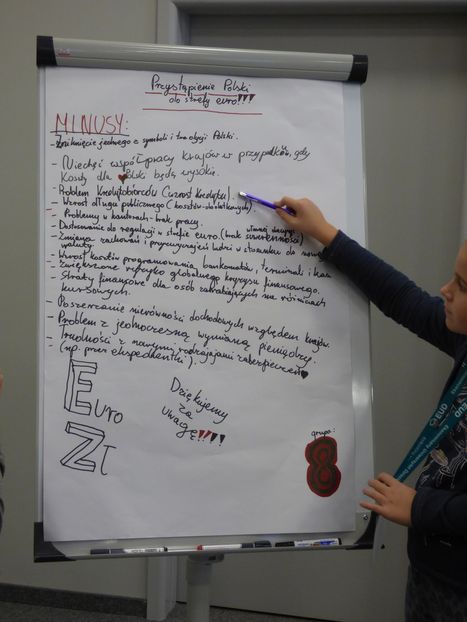 Przystąpienie Polski
do strefy euro!!!
MINUSY:
- Zniknięcie jednego z symboli i tradycji Polski.
- Niechęć współpracy krajów w przypadków, gdy
koszty dla Polski będą wysokie.
- Problem Kredytobiorców (wzrost kredytu).
- Wzrost długu publicznego (kosztów dodatkowych).
- Problemy w kantorach - brak pracy.
- Dostosowanie do regulacji w strefie euro. (brak własnej decyzji suwerenności)
- Zmiana zachowań i przyzwyczajeń ludzi w stosunku do nowej
waluty.
- Wzrost kosztów programowania bankomatów, terminali i kas.
- Zwiększone ryzyko globalnego kryzysu finansowego.
- Straty finansowe dla osób zarabiających na różnicach
kursowych.
- Poszerzanie nierówności dochodowych względem krajów.
- Problem z jednoczesną wymianą pieniędzy.
- Trudności z nowymi rodzajami zabezpieczeń
(np. przez ekspedientki).
Euro
Zł
Dziękujemy
za
uwagę!!!!
grupa:
8
EUD